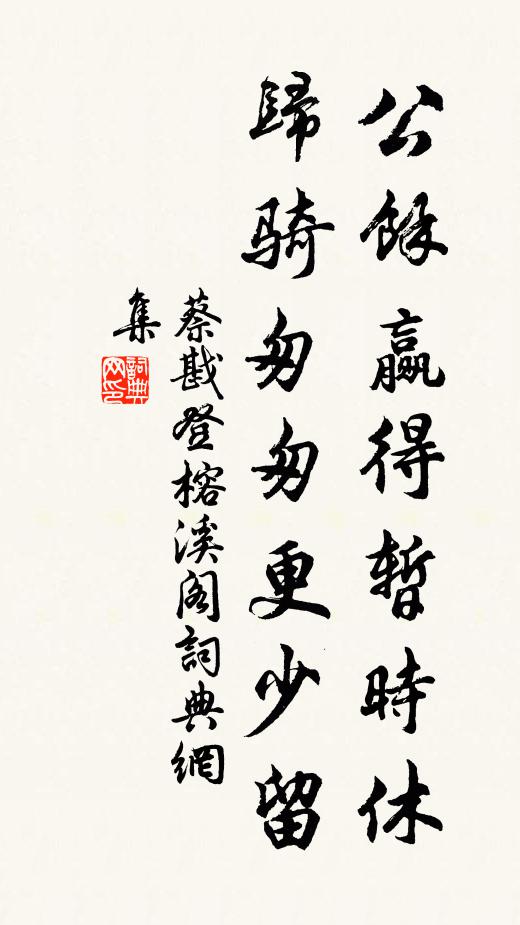 公餘贏得暫時休
歸騎匆匆更少留
蔡戡登榕溪阁詞典網
集
詞典
网印